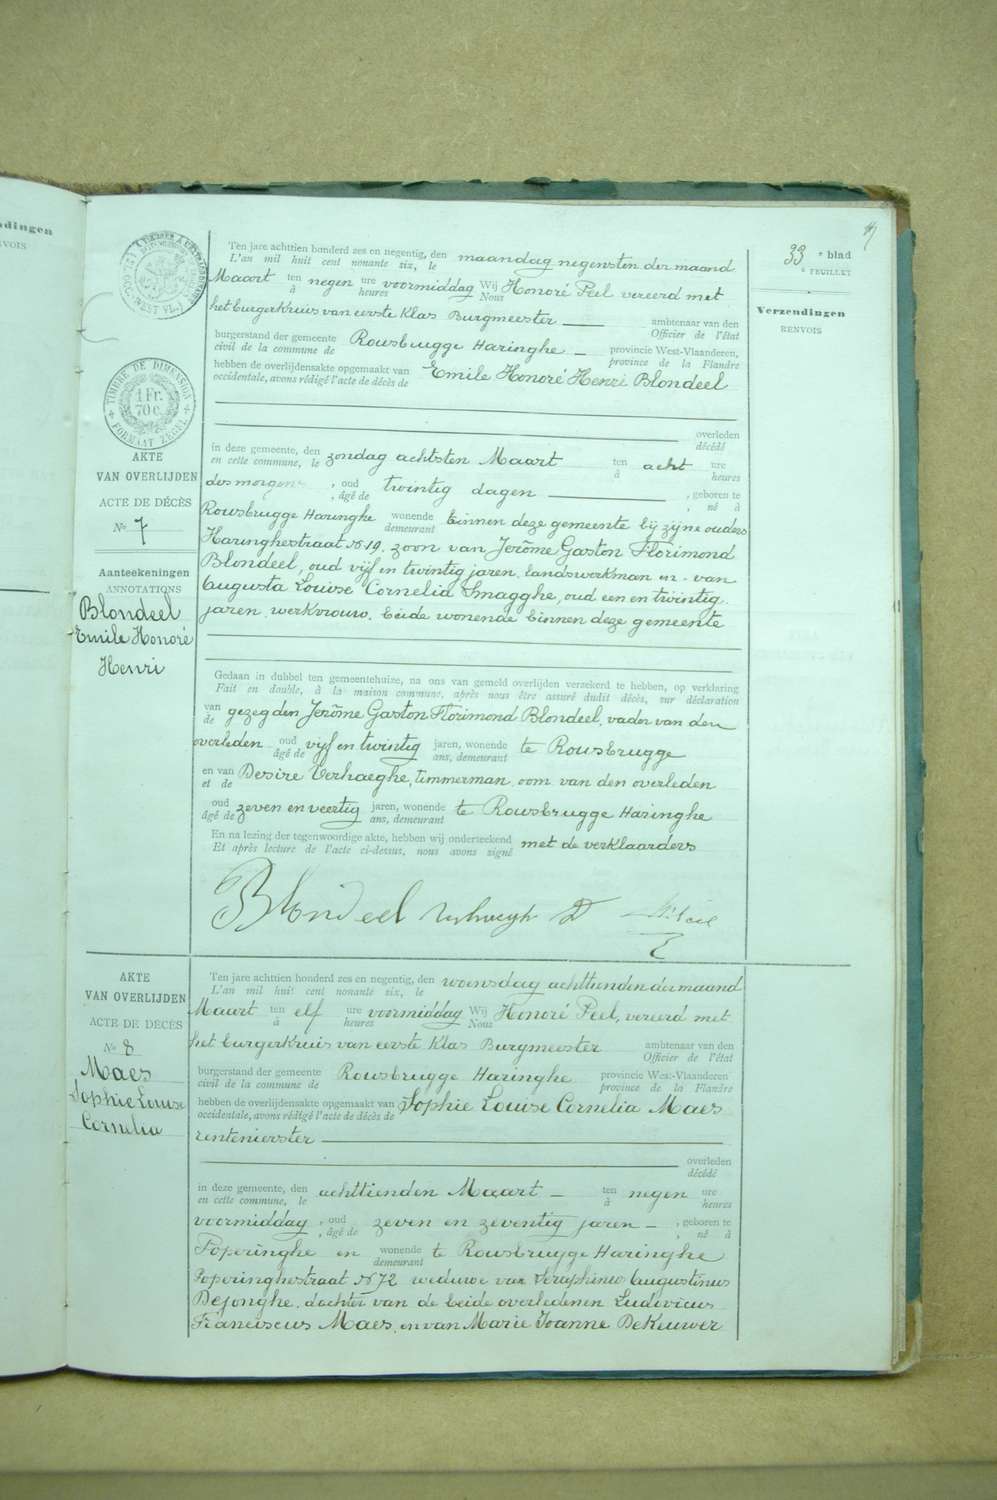 ndingen
NVOIS
33 e blad
e FEUILLET
Verzendingen
RENVOIS
TIMBRE DE DIMENSION
1 Fr.
70 c.
FORMAAT ZEGEL
AKTE
VAN OVERLIJDEN
ACTE DE DÉCÈS
No 7
Aanteekeningen
ANNOTATIONS
Blondeel
Emile Honoré
Henri
Ten jare achttien honderd zes en negentig, den maandag negensten der maand
L'an mil huit cent nonante six, le
Maart ten negen ure voormiddag Wij Honoré Peel vereerd met
à heures Nous
het burgerkruis van eerste Klas Burgmeester ambtenaar van den
Officier de l'état
burgerstand der gemeente Rousbrugge Haringhe provincie West-Vlaanderen,
civil de la commune de province de la Flandre
hebben de overlijdensakte opgemaakt van Emile Honoré Henri Blondeel
occidentale, avons rédigé l'acte de décès de
overleden
décédé
in deze gemeente, den zondag achtsten Maart ten acht ure
en cette commune, le à heures
des morgens , oud twintig dagen , geboren te
, âgé de , né à
Rousbrugge Haringhe wonende binnen deze gemeente bij zijne ouders
demeurant
Haringhestraat No 19, zoon van Jerôme Gaston Florimond
Blondeel, oud vijf en twintig jaren, landswerkman en van
Augusta Louise Cornelia Smagghe, oud een en twintig
jaren, werkvrouw, beide wonende binnen deze gemeente
Gedaan in dubbel ten gemeentehuize, na ons van gemeld overlijden verzekerd te hebben, op verklaring
Fait en double, à la maison commune, après nous être assuré dudit décès, sur déclaration
van gezegden Jerôme Gaston Florimond Blondeel, vader van den
de
overleden oud vijf en twintig jaren, wonende te Rousbrugge
âgé de ans, demeurant
en van Desire Verhaeghe, timmerman, oom van den overleden
et de
oud zeven en veertig jaren, wonende te Rousbrugge Haringhe
âgé de ans, demeurant
En na lezing der tegenwoordige akte, hebben wij onderteekend met de verklaarders
Et après lecture de l'acte ci-dessus, nous avons signé
Blondeel
AKTE
VAN OVERLIJDEN
ACTE DE DÉCÈS
No 8
Maes
Sophie Louise
Cornelia
Ten jare achttien honderd zes en negentig, den woensdag achttienden der maand
L'an mil huit cent nonante six, le
Maart ten elf ure voormiddag Wij Honoré Peel, vereerd met
à heures Nous
het burgerkruis van eerste Klas Burgmeester ambtenaar van den
Officier de l'état
burgerstand der gemeente Rousbrugge Haringhe provincie West-Vlaanderen
civil de la commune de province de la Flandre
hebben de overlijdensakte opgemaakt van Sophie Louise Cornelia Maes
occidentale, avons rédigé l'acte de décès de
rentenierster
overleden
décédé
in deze gemeente, den achttienden Maart ten negen ure
en cette commune, le à heures
voormiddag , oud zeven en zeventig jaren , geboren te
, âgé de , né à
Poperinghe en wonende te Rousbrugge Haringhe
demeurant
Poperinghestraat No 72 weduwe van Seraphinus Augustinus
Dejonghe, dochter van de beide overledenen Ludovicus
Franciscus Maes, en van Marie Joanne DeKeuwer